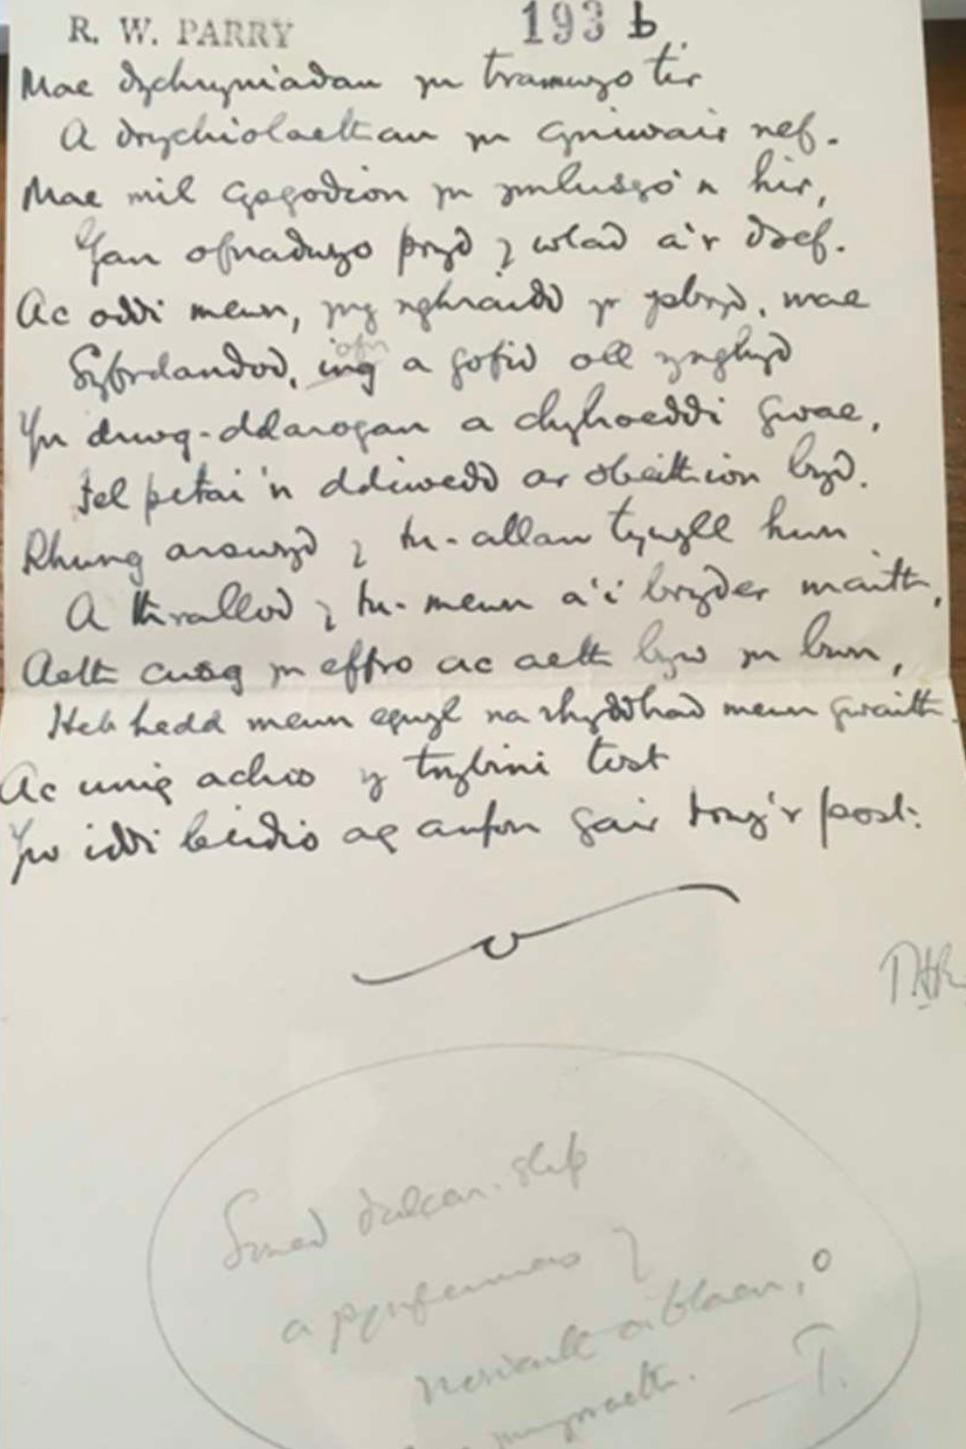 R. W. PARRY 193 b
Mae dychryniadau yn tramwyo tir
A drychiolaethau yn cyniwair nef.
Mae mil cysgodion yn ymlusgo'n hir,
Gan ofnadwyo pryd y wlad a'r dref.
Ac oddi mewn, yng nghraidd yr ysbryd, mae
Syfrdandod, ing ofn a gofid oll ynghyd
Yn drwg-ddarogan a chyhoeddi gwae,
Fel petai'n ddiwedd ar obeithion byd.
Rhwng arswyd y tu-allan tywyll hwn
A thrallod y tu-mewn a'i bryder maith,
Aeth cwsg yn effro ac aeth byw yn bwn,
Heb hedd mewn egwyl na rhyddhad mewn gwaith.
Ac unig achos y trybini tost
Yw iddi beidio ag anfon gair drwy'r post.
T.H.P.
Smed
a
a'i blaen, o
T.